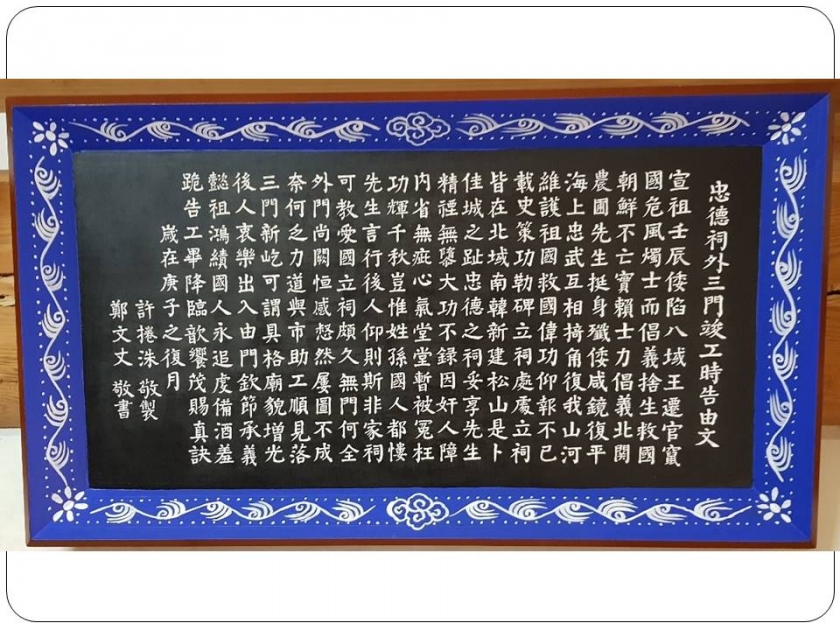 忠德祠外三門竣工時告由文
宣祖壬辰倭陷八域王遷官竄
國危風燭士而倡義捨生救國
朝鮮不亡實賴士力倡義北関
農圃先生挺身殲倭咸鏡復平
海上忠武互相掎角復我山河
維護祖國救國偉功仰報不已
載史策功勒碑立祠處處立祠
皆在北域南韓新建松山是卜
佳城之趾忠德之祠妥享先生
精禋無墜大功不錄因奸人障
内省無疵心氣堂堂暫被冤枉
功輝千秋豈惟姓孫國人都悽
先生言行後人仰則斯非家祠
可教愛國立祠頗久無門何全
外門尚闕恒感惄然屢圖不成
奈何乏力道與市助工順見落
三門新屹可謂具格廟貌增光
後人哀樂出入由門欽節承義
懿祖鴻績國人永追虔備酒羞
跪告工畢降臨歆饗茂賜真訣
歲在庚子之復月
許捲洙 敬製
鄭文丈 敬書